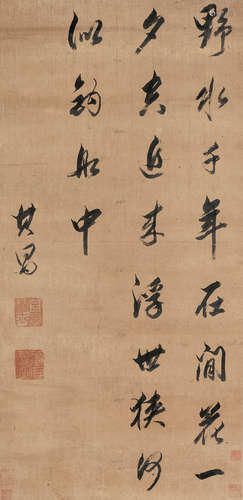 野水千年在閒花一
夕空近來浮世狹何
似釣船中
其昌